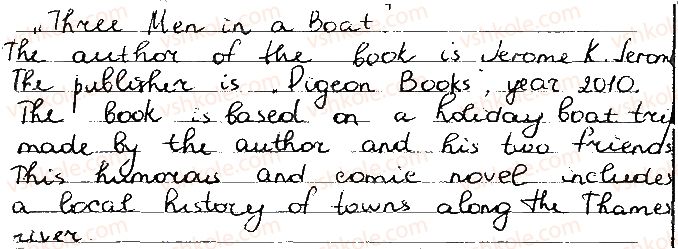 „Three Men in a Boat"
The author of the book is Jerome K. Jerom
The publisher is „Pigeon Books", year 2010.
The book is based on a holiday boat tri
made by the author and his two friends
This humorous and comic novel includes
a local history of towns along the Thames
river.